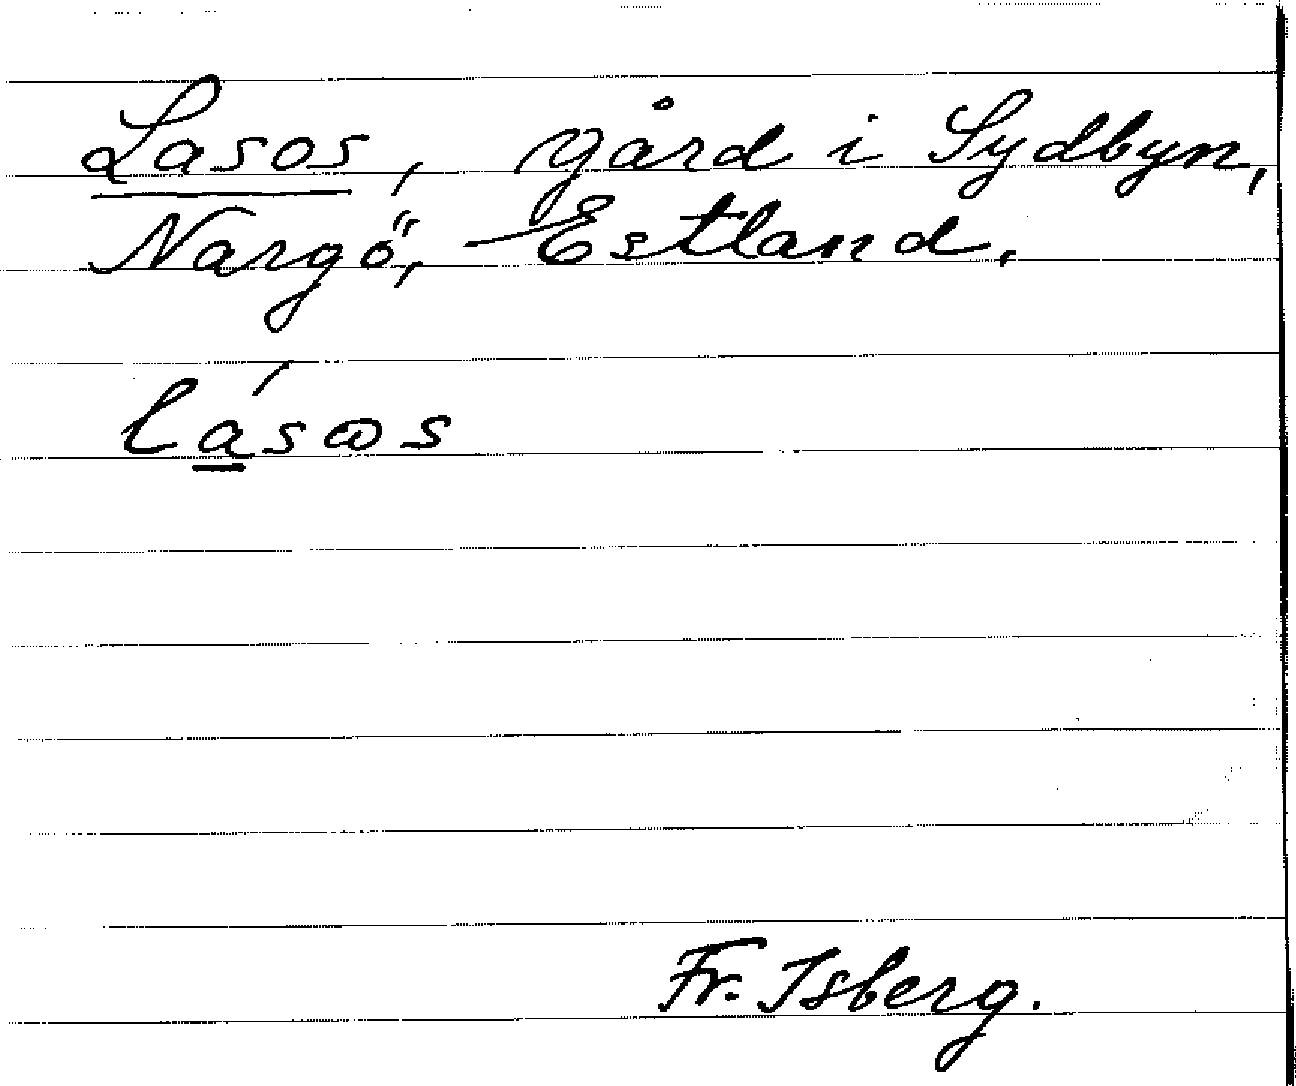 Lasos, gård i Sydbyn,
Nargö, Estland.
lásɷs
Fr. Isberg.